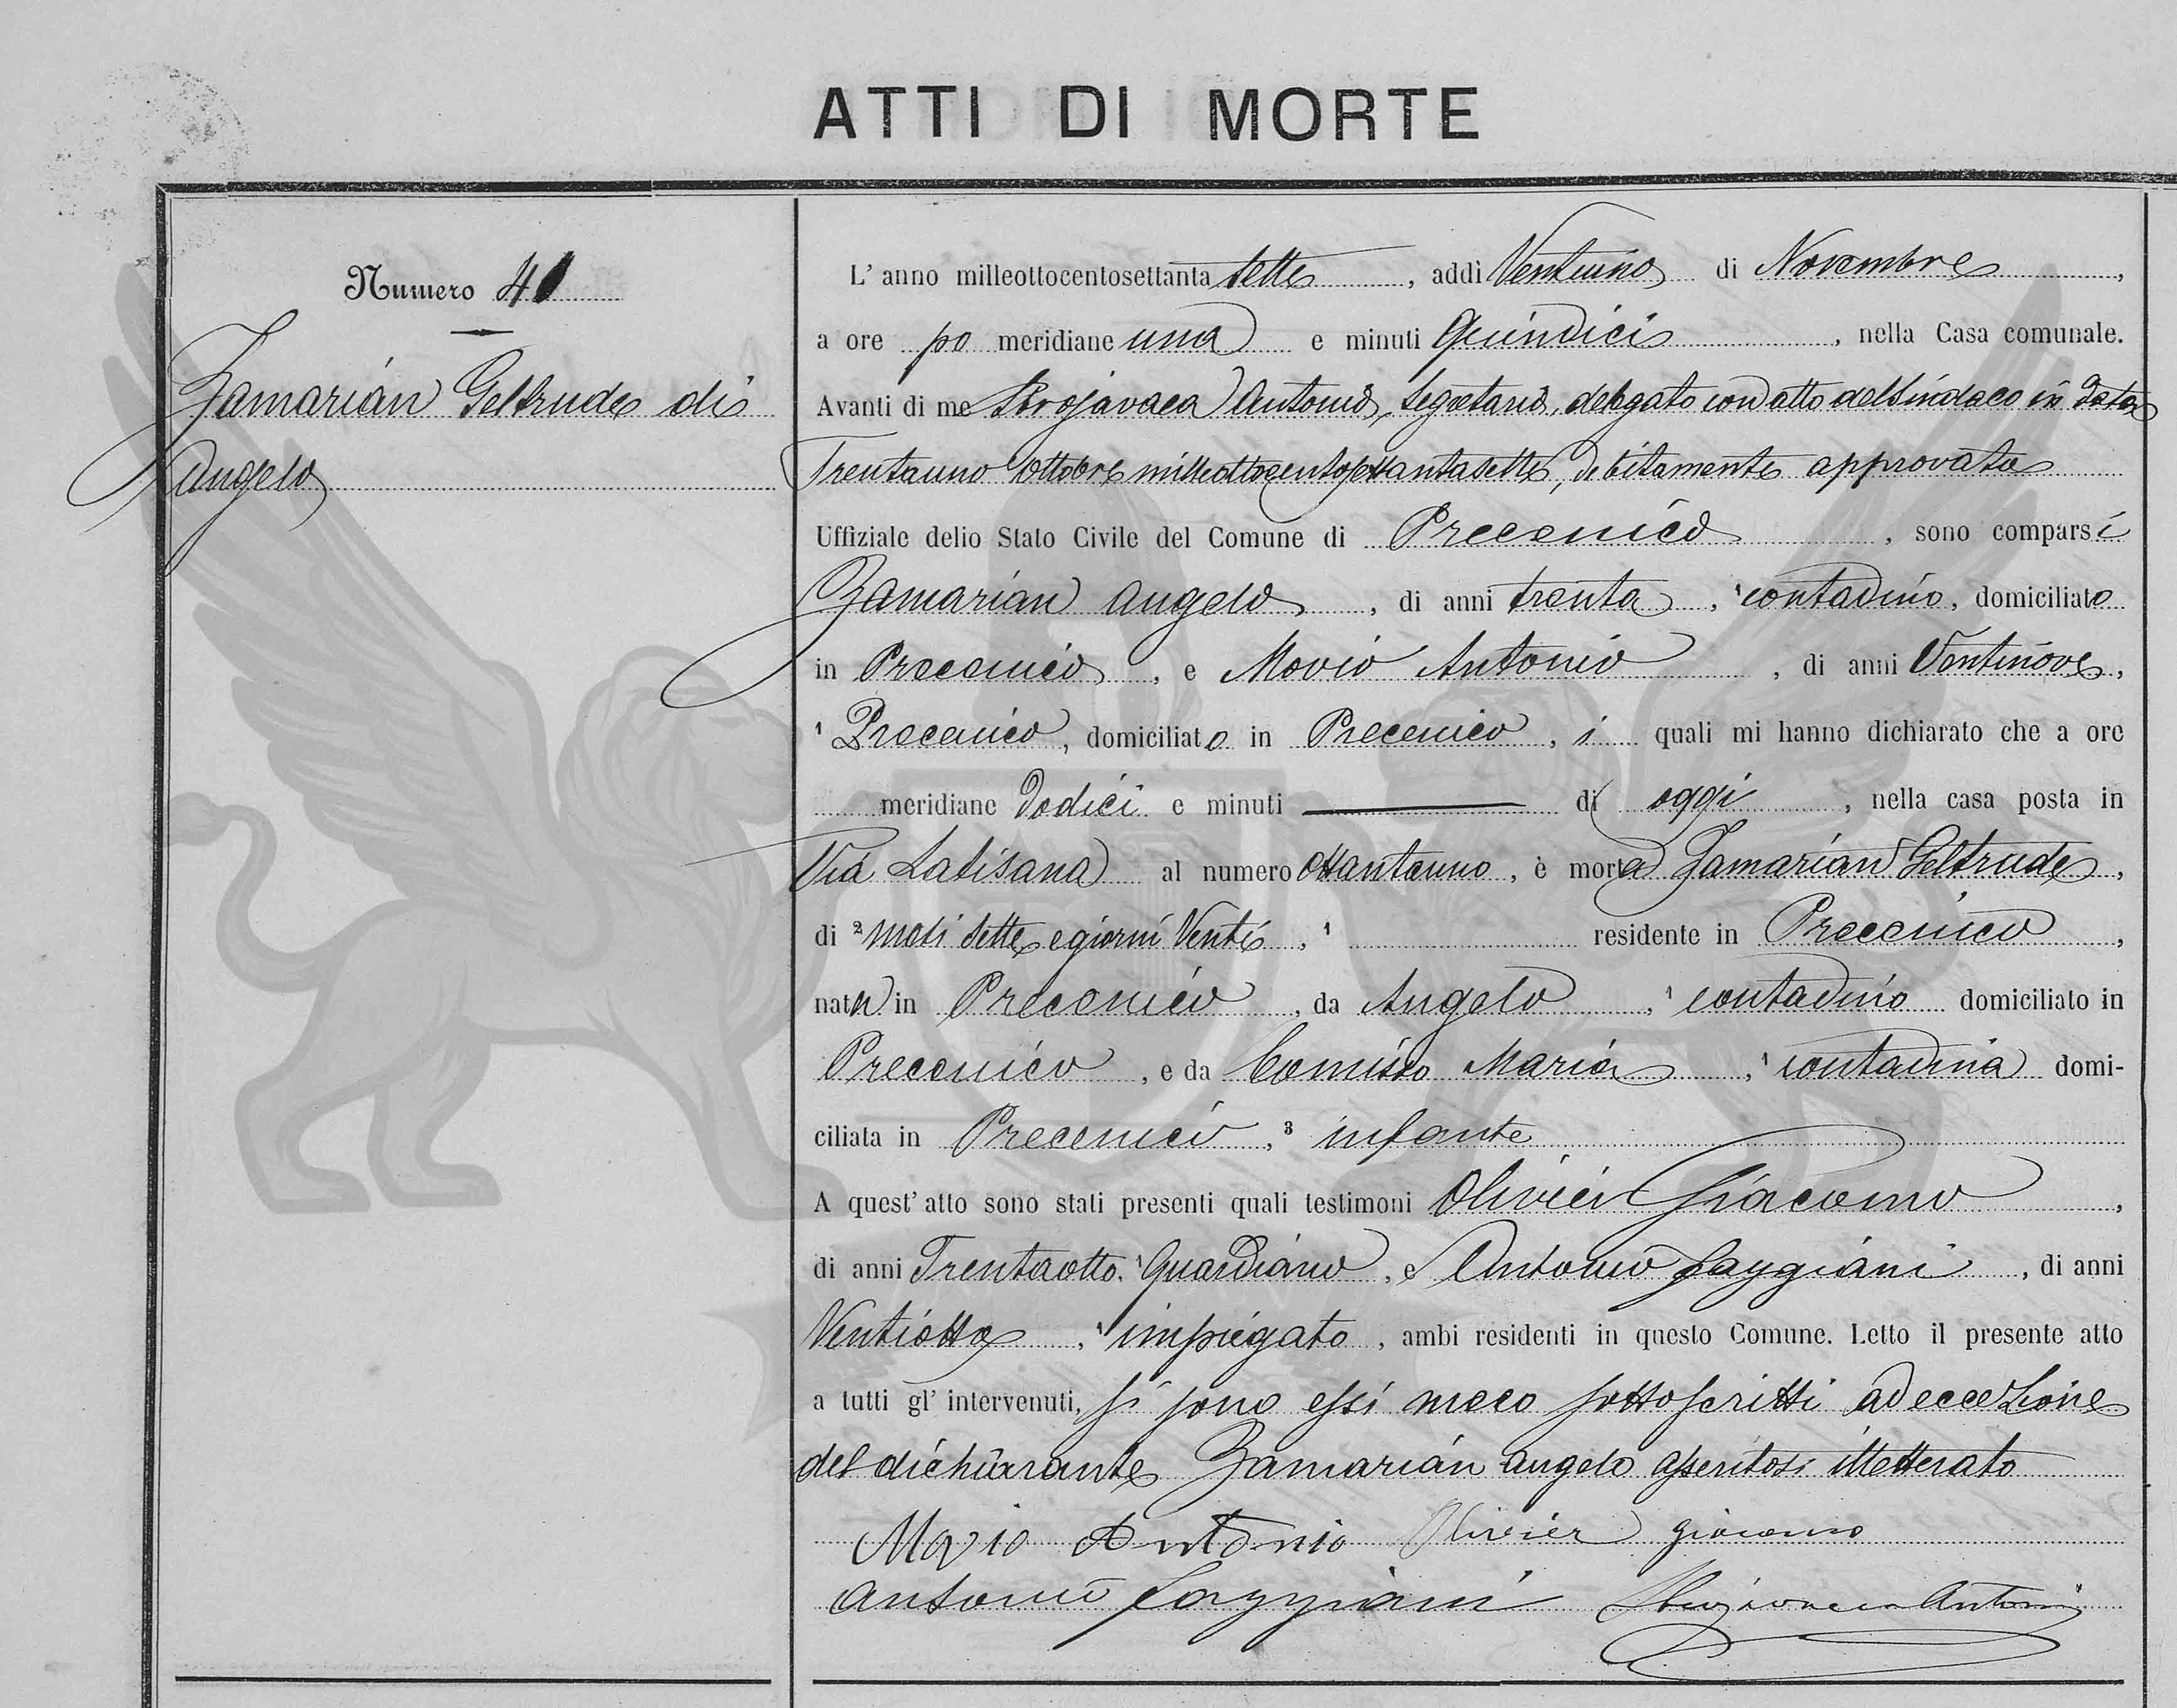 ATTI DI MORTE
Numero 41
Zamarian Geltrude di
Angelo
L' anno milleottocentosettanta sette, addì Ventuno di Novembre,
a ore po meridiane una e minuti Quindici, nella Casa comunale.
Avanti di me Antonio, Segretario, delegato con atto del Sindaco in data
Trentauno Ottobre milleottocentosettantasette, debitamente approvata
Uffiziale dello Stato Civile del Comune di Precenico, sono comparsi
Zamarian Angelo, di anni trenta, ¹ contadino, domiciliato
in Precenico, e Movio Antonio, di anni Ventinove,
¹ Precenico, domiciliato in Precenico, i quali mi hanno dichiarato che a ore
meridiane Dodici e minuti — di oggi, nella casa posta in
Via Latisana al numero Ottantauno, è morta Zamarian Geltrude,
di ² Mesi Sette e giorni Venti, ¹ residente in Precenico,
nata in Precenico, da Angelo, ¹ contadino domiciliato in
Precenico, e da Comisso Maria, ¹ contadina domi-
ciliata in Precenico, ³ infante
A quest' atto sono stati presenti quali testimoni Olivier Giacomo,
di anni Trentaotto, ¹ Guardiano, e Antonio Faggiani, di anni
Ventiotto, ¹ impiegato, ambi residenti in questo Comune. Letto il presente atto
a tutti gl' intervenuti, si sono essi meco sottoscritti ad eccezione
del dichiarante Zamarian Angelo asseritosi illetterato
Movio Antonio Olivier Giacomo
Antonio Faggiani Antonio